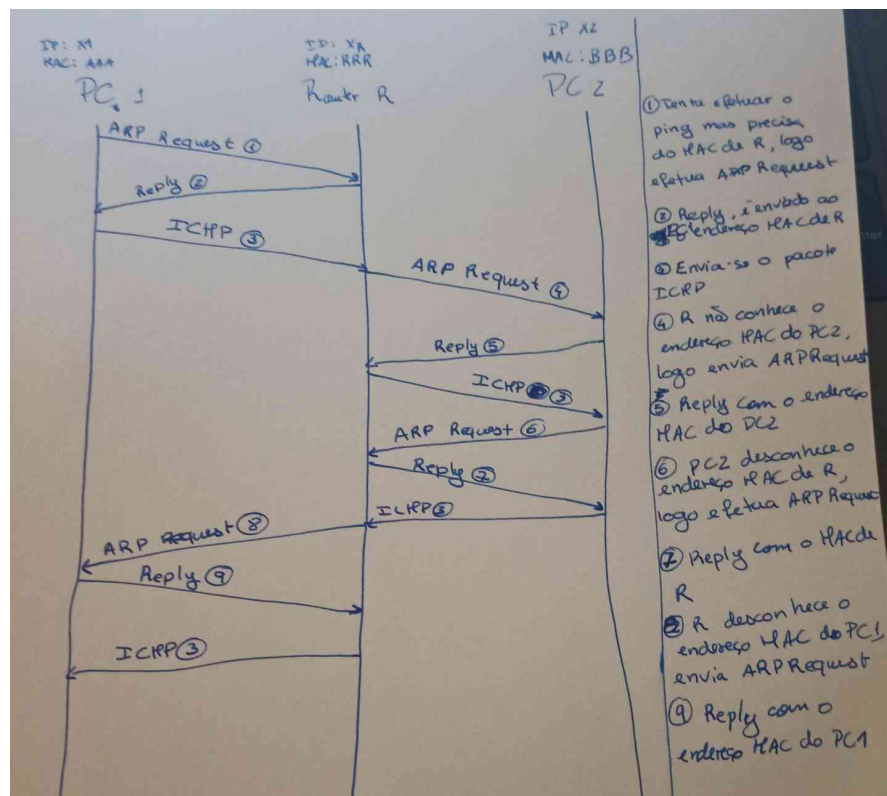 IP: X1
MAC: AAA
PC 1
IP: XR
MAC: RRR
Router R
IP X2
MAC: BBB
PC 2
ARP Request ①
Reply ②
ICMP ③
ARP Request ④
Reply ⑤
ICMP ③
ARP Request ⑥
Reply ⑦
ICMP ③
ARP Request ⑧
Reply ⑨
ICMP ③
① Tenta efetuar o
ping mas precisa
do MAC de R, logo
efetua ARP Request
② Reply, é enviado ao
PC1 endereço MAC de R
③ Envia-se o pacote
ICMP
④ R não conhece o
endereço MAC do PC2,
logo envia ARP Request
⑤ Reply com o endereço
MAC do PC2
⑥ PC2 desconhece o
endereço MAC de R,
logo efetua ARP Request
⑦ Reply com o MAC de
R
⑧ R desconhece o
endereço MAC do PC1,
envia ARP Request
⑨ Reply com o
endereço MAC do PC1